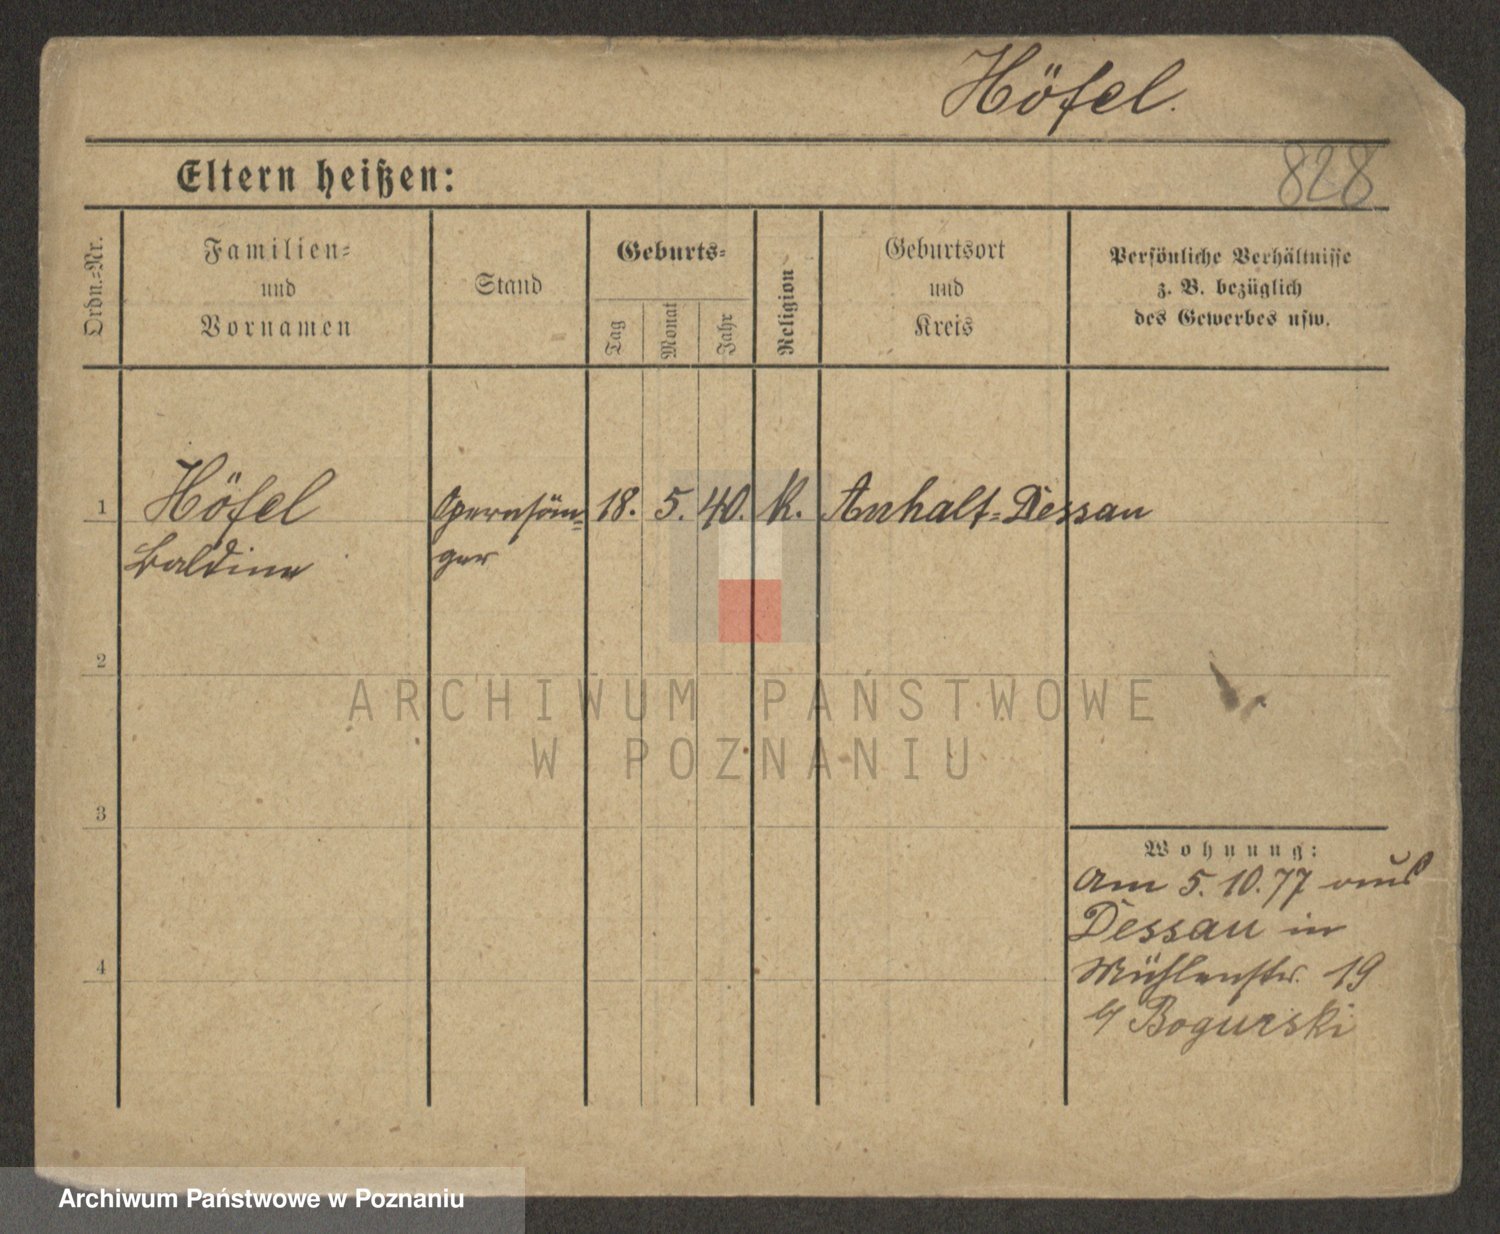 Höfel.
828
Eltern heißen:
Ordn.-Nr.
Familien-
und
Vornamen
Stand
Geburts-
Tag
Monat
Jahr
Religion
Geburtsort
und
Kreis
Persönliche Verhältnisse
z. B. bezüglich
des Gewerbes usw.
1
Höfel
Opernsän-
18. 5. 40. K. Anhalt-Dessau
ger
2
ARCHIWUM PAŃSTWOWE
W POZNANIU
3
Wohnung:
Am 5.10.77 aus
Dessau in
Mühlenstr. 19
b/ Bogurski
4
Archiwum Państwowe w Poznaniu